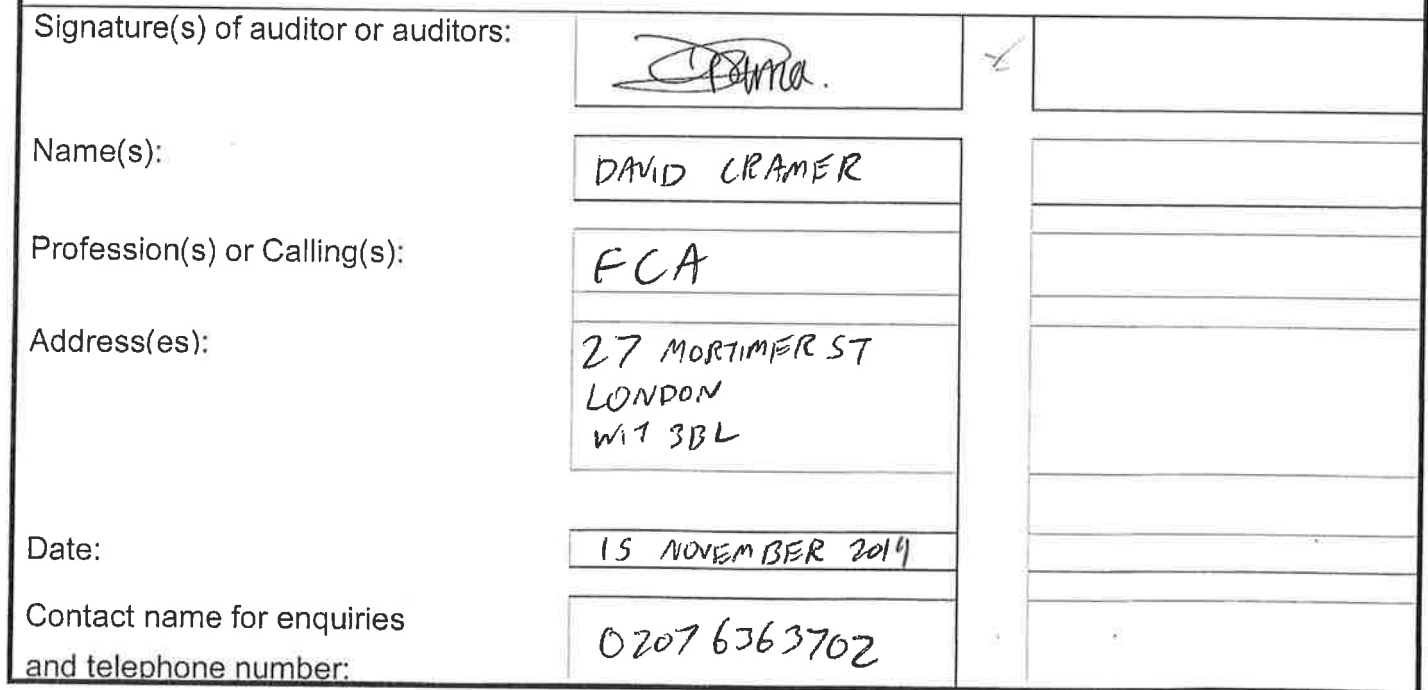 Signature(s) of auditor or auditors:
Name(s):
DAVID CRAMER
Profession(s) or Calling(s):
FCA
Address(es):
27 MORTIMER ST
LONDON
W1T 3BL
Date:
15 NOVEMBER 2019
Contact name for enquiries
and telephone number:
0207 6363702